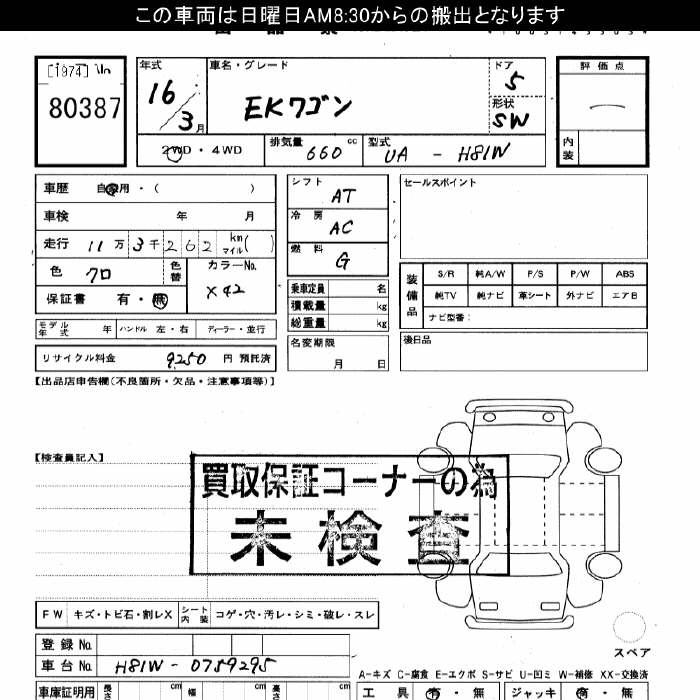 この車両は日曜日AM8:30からの搬出となります
[1974] \ln
80387
年式
16
3月
車名・グレード
EKワゴン
ドア
5
形状
SW
評価点
―
内装
2WD・4WD
排気量
660 cc
型式
UA - H81W
車歴 自家用・( )
車検 年 月
走行 11万3千262 km マイル( )
色 クロ
色替
カラーNo.
X42
保証書 有・無
モデル年式 年 ハンドル 左・右 ディーラー・並行
リサイクル料金 9250 円 預託済
シフト
AT
冷房
AC
燃料
G
乗車定員 名
積載量 kg
総重量 kg
名変期限
月 日
セールスポイント
装備品
S/R 純A/W P/S P/W ABS
純TV 純ナビ 革シート 外ナビ エアB
ナビ型番:
後日品
【出品店申告欄(不良箇所・欠品・注意事項等)】
【検査員記入】
買取保証コーナーの為
未検査
FW キズ・トビ石・割レX シート内装 コゲ・穴・汚レ・シミ・破レ・スレ
スペア
登録No.
車台No. H81W - 0759295
A-キズ C-腐食 E-エクボ S-サビ U-凹ミ W-補修 XX-交換済
車庫証明用 長さ cm 幅 cm 高さ cm
工具 有・無 ジャッキ 有・無